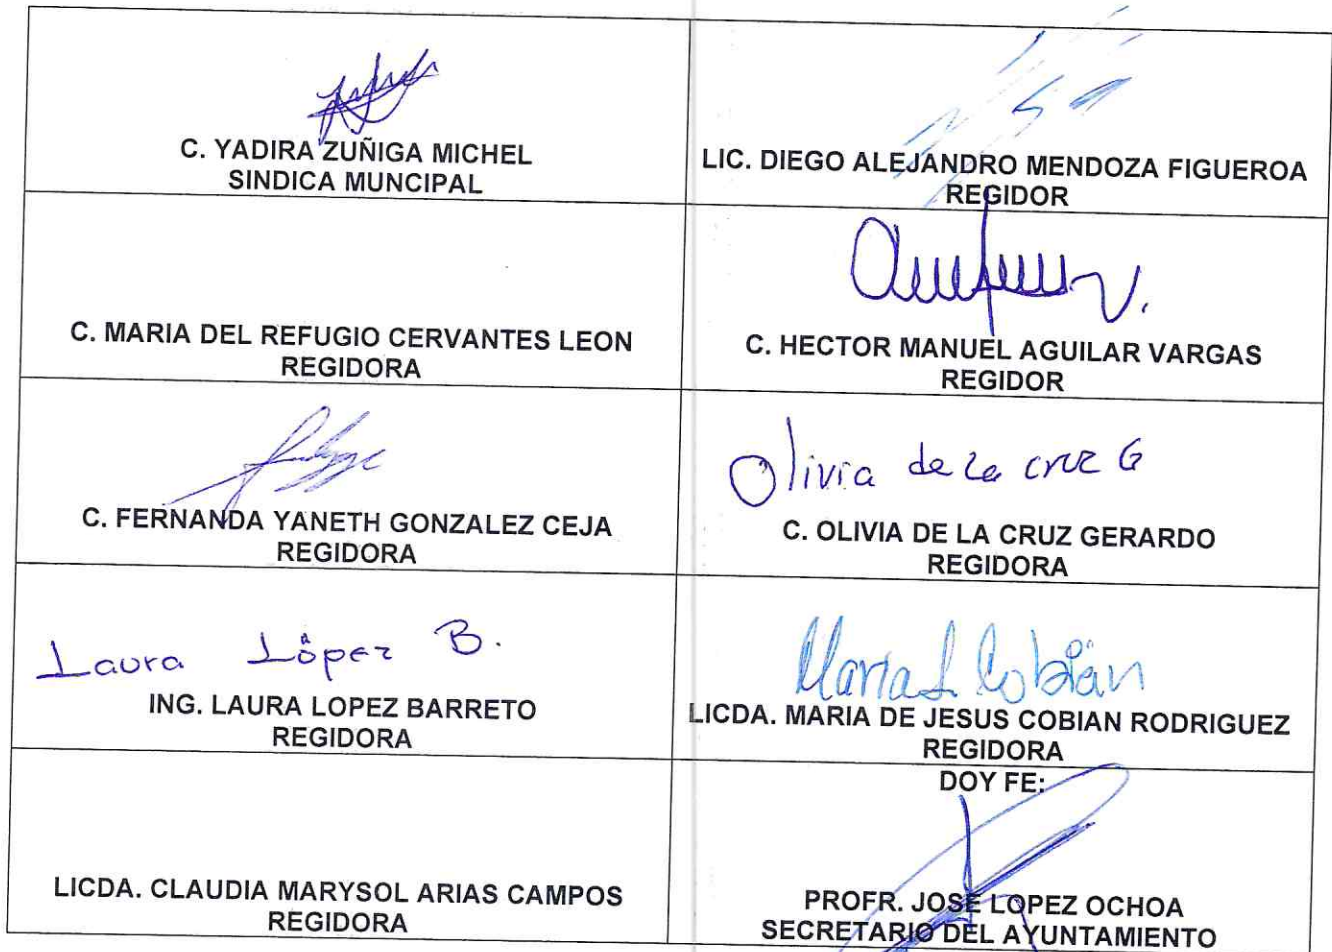 C. YADIRA ZUÑIGA MICHEL
SINDICA MUNCIPAL
LIC. DIEGO ALEJANDRO MENDOZA FIGUEROA
REGIDOR
C. MARIA DEL REFUGIO CERVANTES LEON
REGIDORA
C. HECTOR MANUEL AGUILAR VARGAS
REGIDOR
C. FERNANDA YANETH GONZALEZ CEJA
REGIDORA
Olivia de la cruz G
C. OLIVIA DE LA CRUZ GERARDO
REGIDORA
Laura López B.
ING. LAURA LOPEZ BARRETO
REGIDORA
Maria J. Cobián
LICDA. MARIA DE JESUS COBIAN RODRIGUEZ
REGIDORA
LICDA. CLAUDIA MARYSOL ARIAS CAMPOS
REGIDORA
DOY FE:
PROFR. JOSE LOPEZ OCHOA
SECRETARIO DEL AYUNTAMIENTO